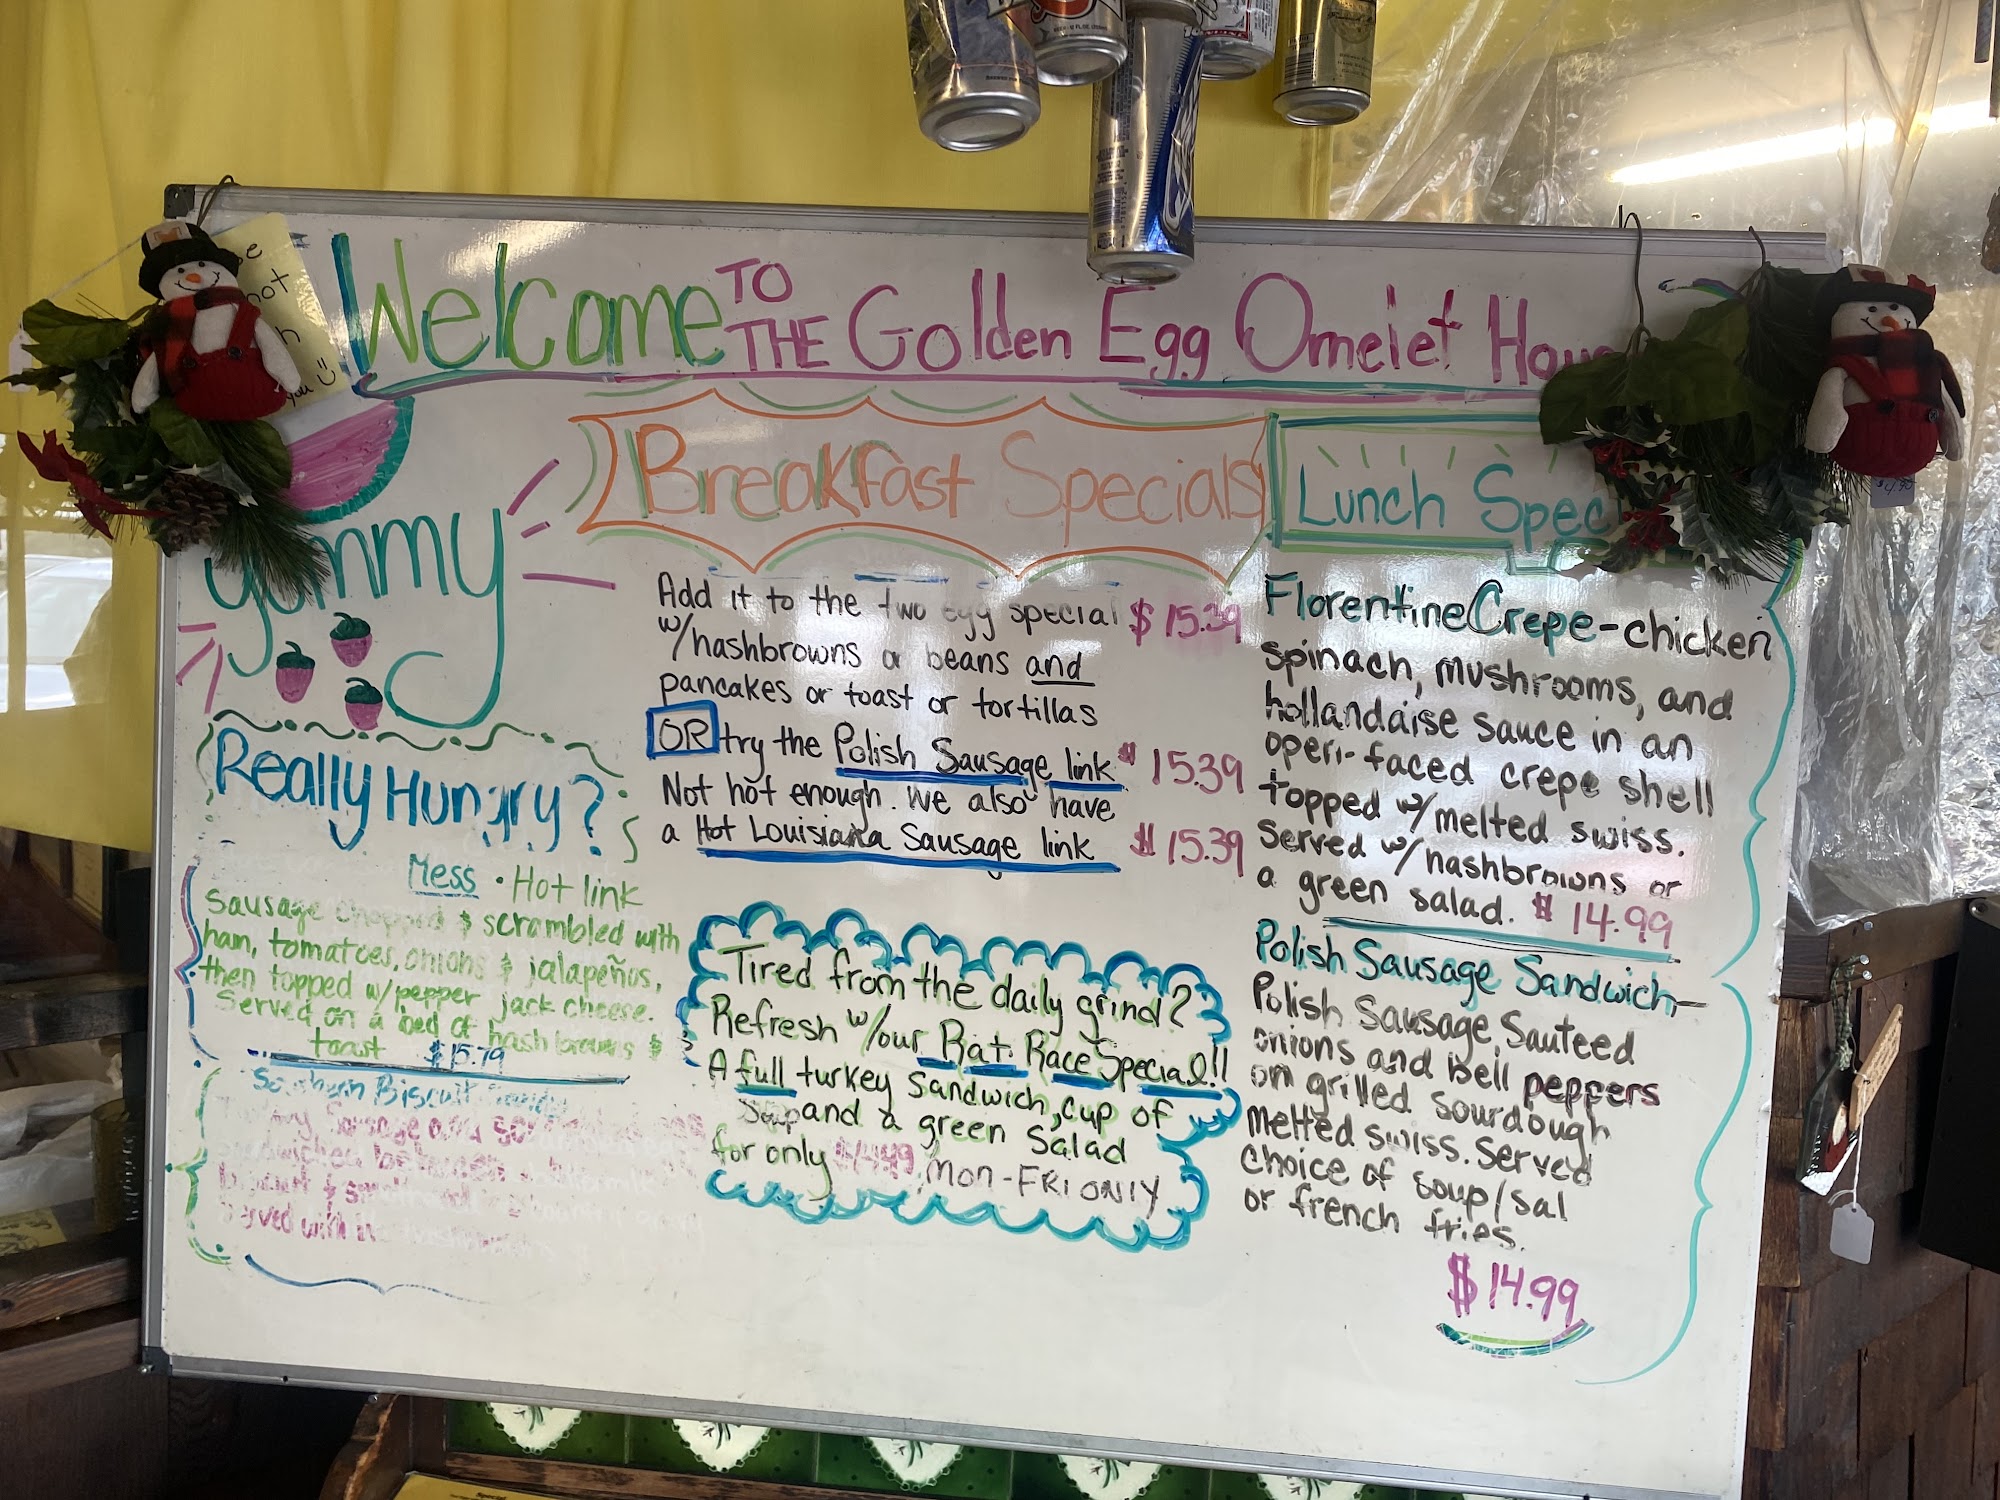 Welcome TO THE Golden Egg Omelet Hou
yummy
Breakfast Specials
Add it to the two egg special $15.39
w/hashbrowns or beans and
pancakes or toast or tortillas
OR try the Polish Sausage link $15.39
Not hot enough. We also have
a Hot Louisiana Sausage link $15.39
Lunch Spec
Florentine Crepe - chicken
spinach, mushrooms, and
hollandaise sauce in an
open-faced crepe shell
topped w/melted swiss.
Served w/hashbrowns or
a green salad. $14.99
Polish Sausage Sandwich -
Polish Sausage, Sauteed
onions and bell peppers
on grilled sourdough
melted swiss. Served
choice of soup/sal
or french fries.
$14.99
Really Hungry?
Mess • Hot link
Sausage chopped & scrambled with
ham, tomatoes, onions & jalapeños,
then topped w/pepper jack cheese.
Served on a bed of hash browns &
toast $15.79
Southern Biscuit
Sausage and
served with
Tired from the daily grind?
Refresh w/our Rat Race Special!!
A full turkey sandwich, cup of
Soup and a green salad
for only $14.99, MON-FRI ONLY